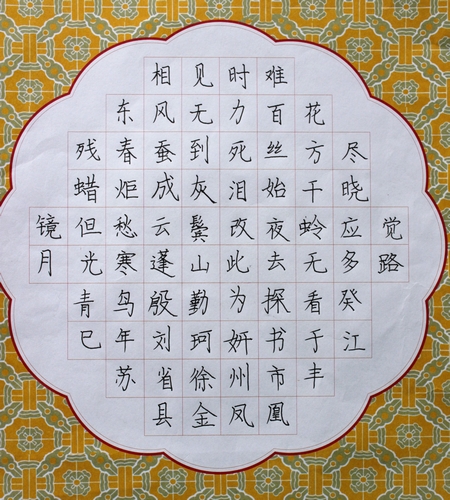 相见时难
东风无力百花
残春蚕到死丝方尽
蜡炬成灰泪始干晓
镜但愁云鬓改夜蛉应觉
月光寒蓬山此去无多路
青鸟殷勤为探看癸
巳年刘珂妍书于江
苏省徐州市丰
县金凤凰